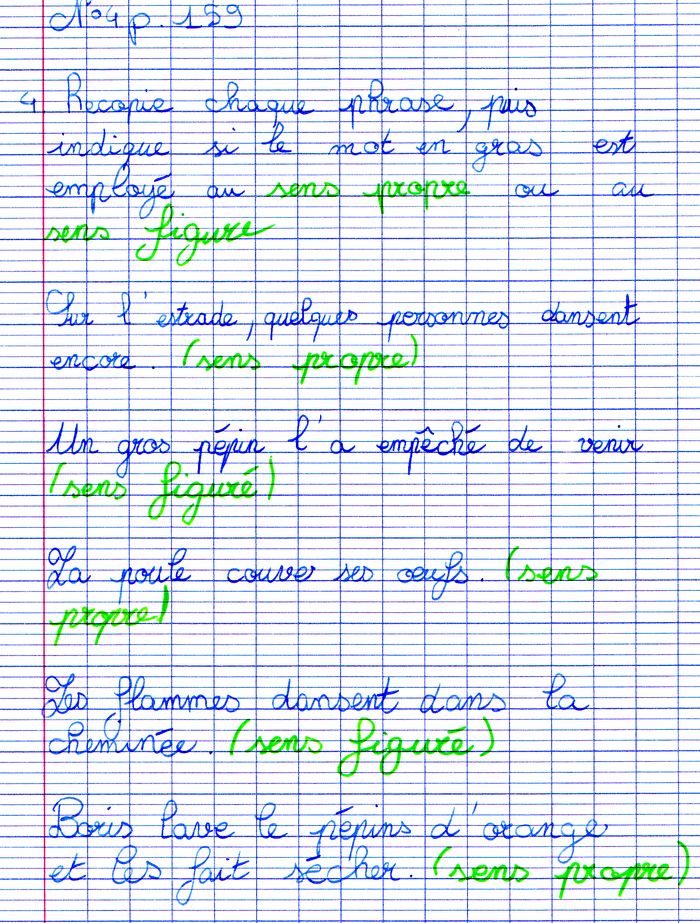 N°4 p. 159
4. Recopie chaque phrase, puis
indique si le mot en gras est
employé au sens propre ou au
sens figure
Sur l'estrade, quelques personnes dansent
encore. (sens propre)
Un gros pépin l'a empêché de venir
(sens figuré)
La poule couver ses œufs. (sens
propre)
Les flammes dansent dans la
cheminée. (sens figuré)
Boris lave le pépins d'orange
et les fait sécher. (sens propre)